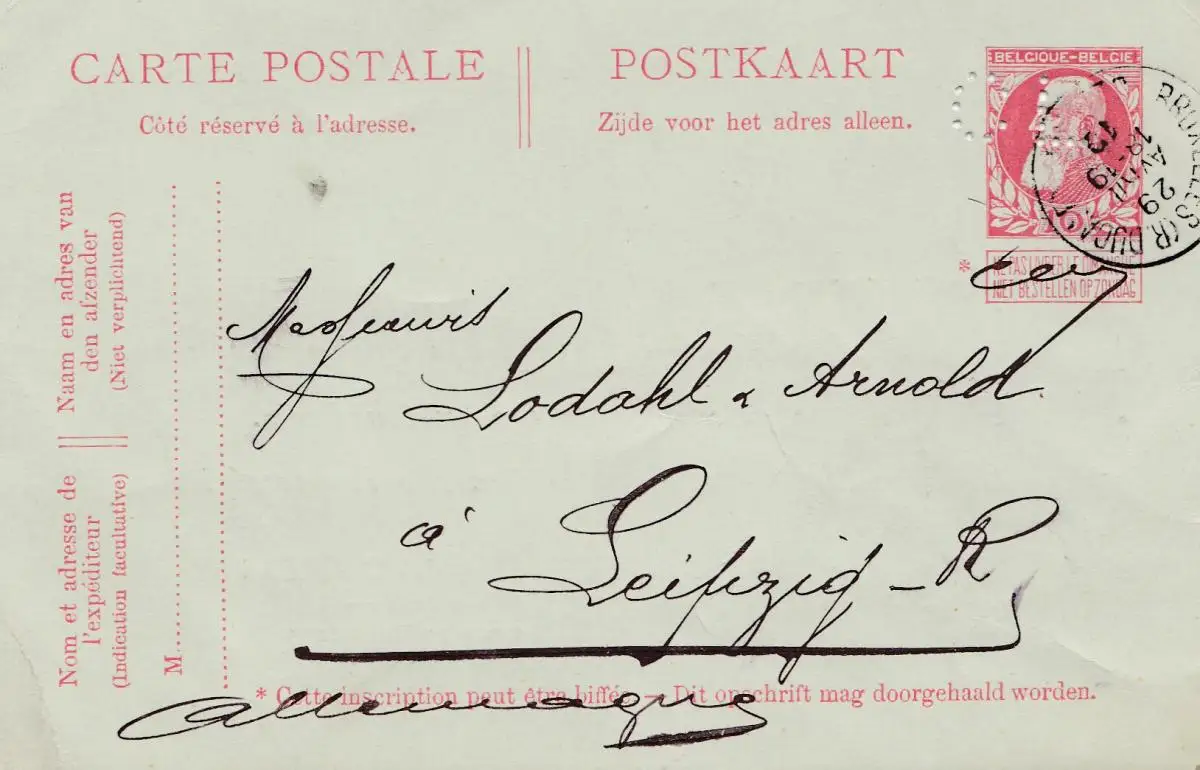 CARTE POSTALE
Côté réservé à l'adresse.
POSTKAART
Zijde voor het adres alleen.
BELGIQUE-BELGIE
10
BRUXELLES (R. DUCALE)
29
AVRIL
18-19
13
* NE PAS LIVRER LE DIMANCHE
NIET BESTELLEN OP ZONDAG
Naam en adres van
den afzender
(Niet verplichtend)
Nom et adresse de
l'expéditeur
(Indication facultative)
M
Messieurs
Lodahl & Arnold
à
Leipzig-R
* Cette inscription peut être biffée — Dit opschrift mag doorgehaald worden.
Allemagne